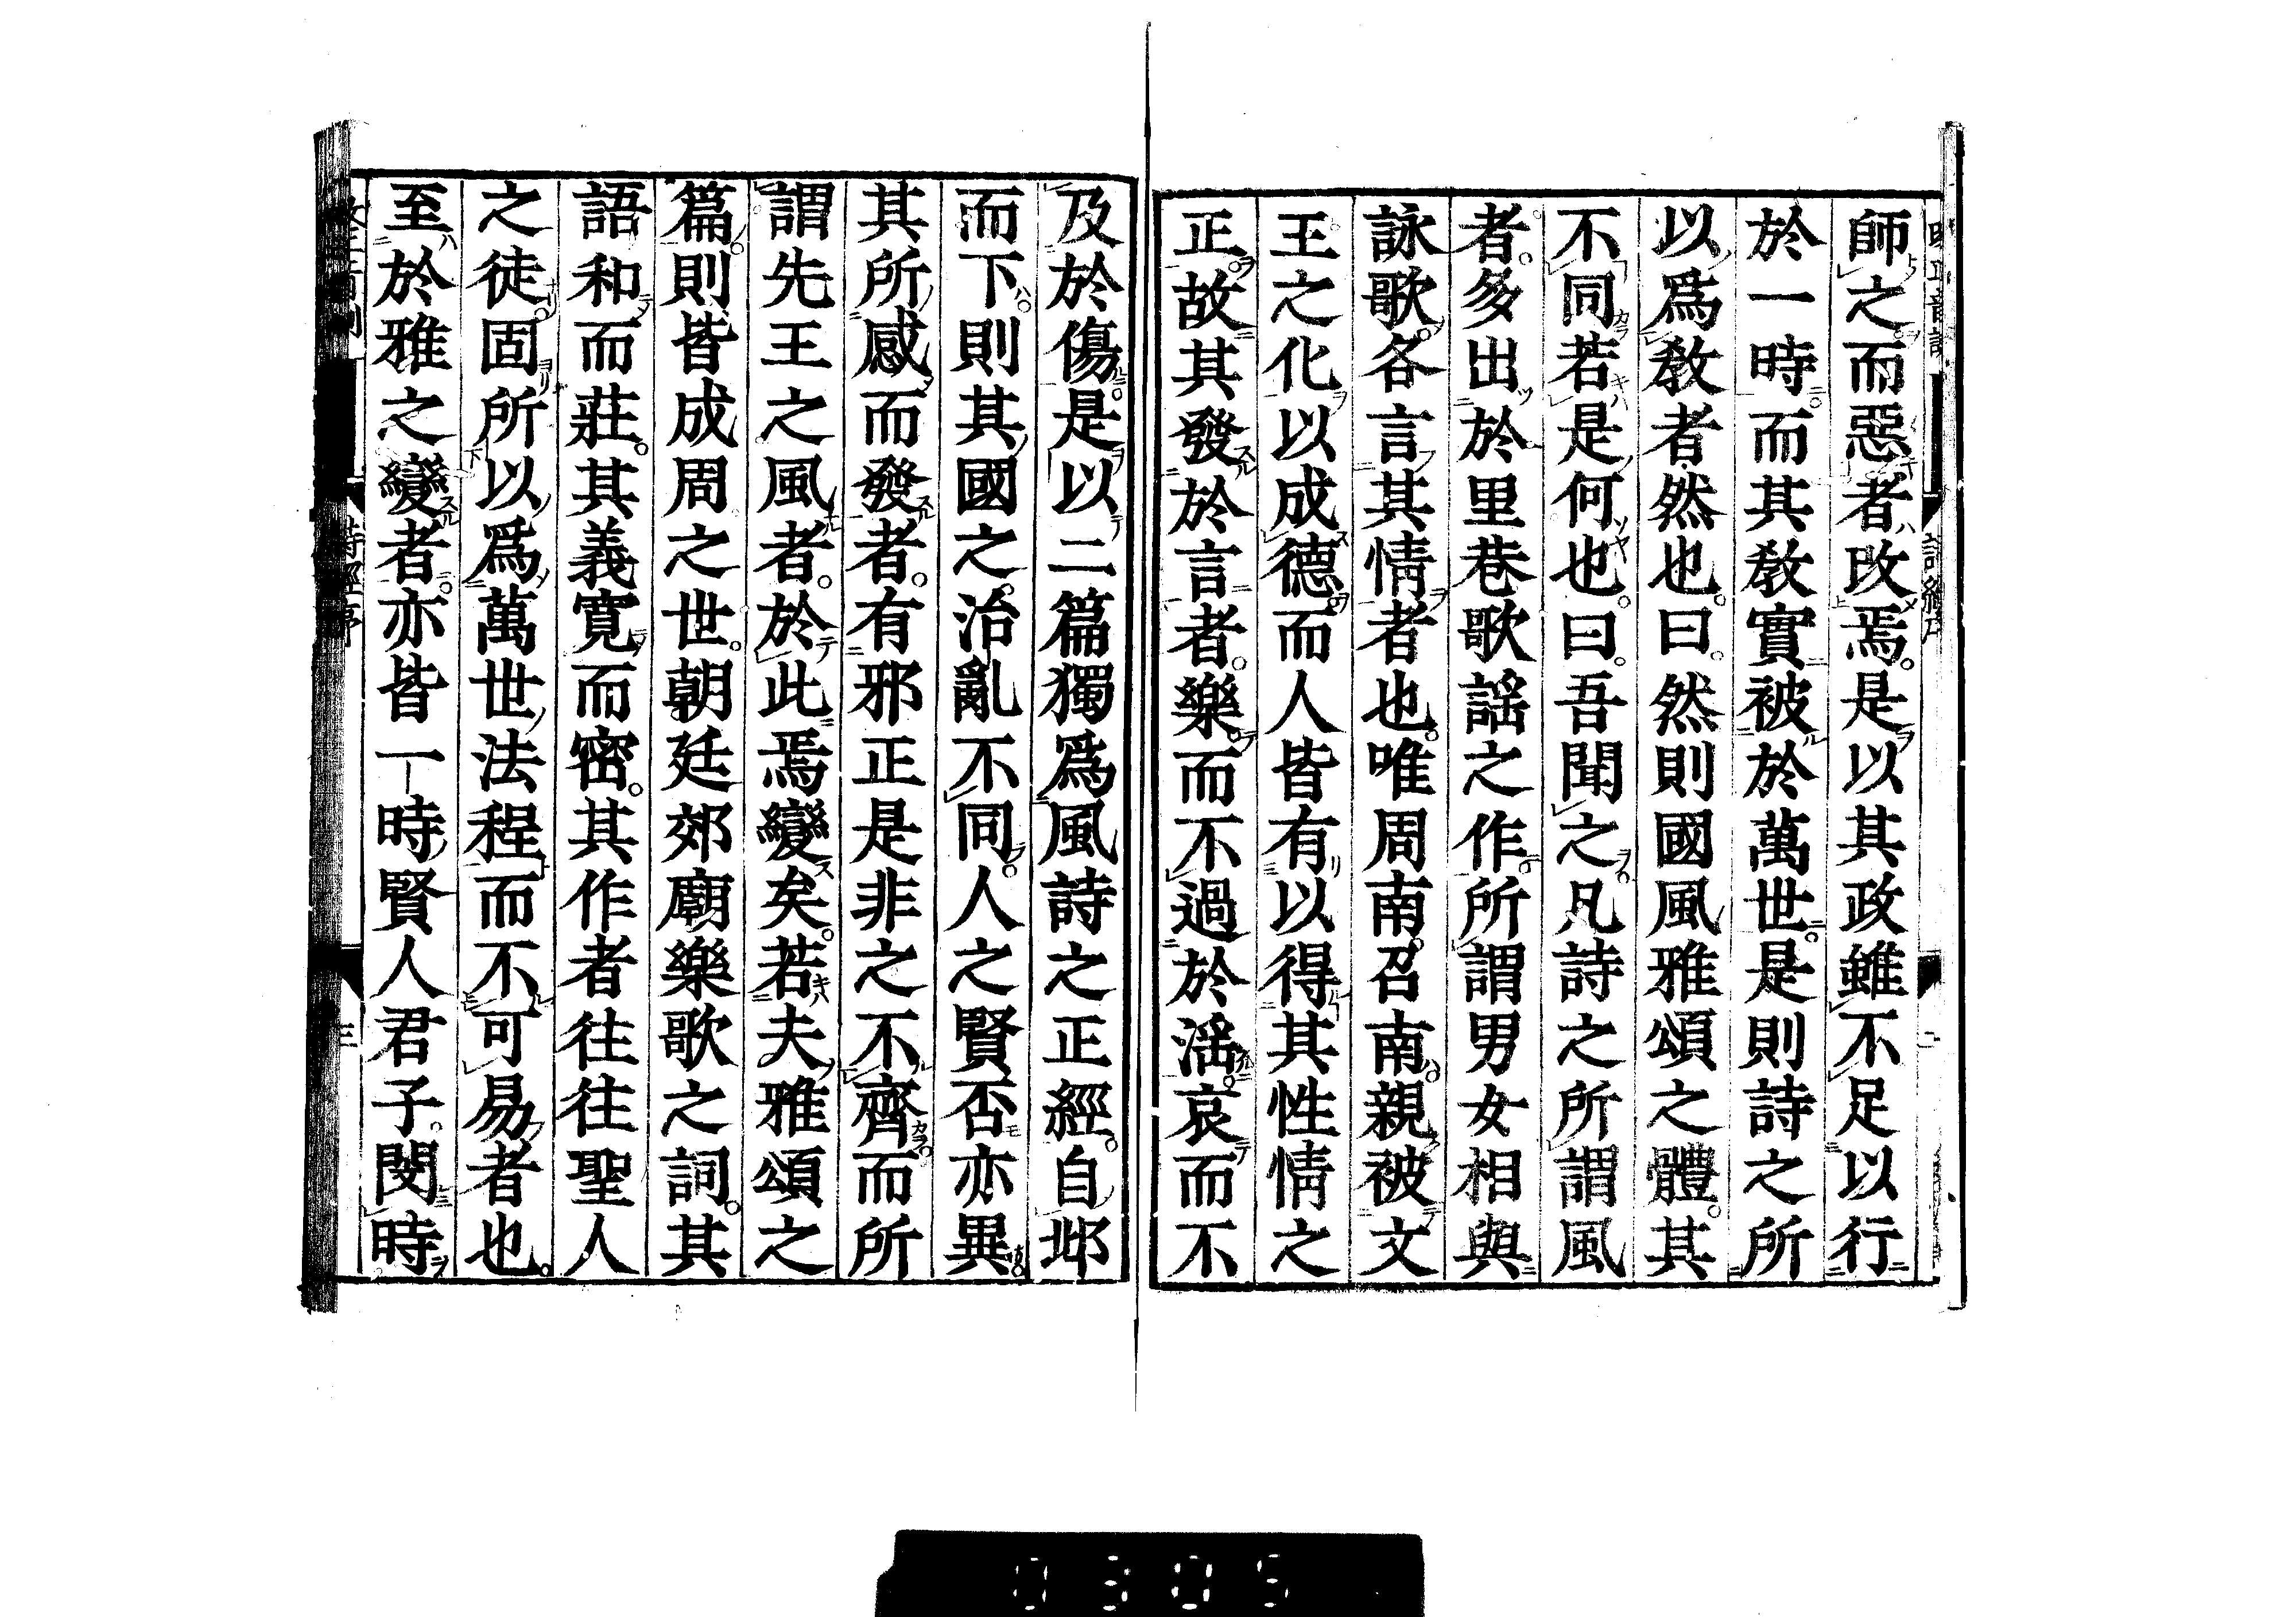 師之而惡者改焉。是以其政雖不足以行
於一時而其教實被於萬世。是則詩之所
以爲教者然也。曰。然則國風雅頌之體。其
不同若是何也。曰。吾聞之。凡詩之所謂風
者。多出於里巷歌謠之作。所謂男女相與
詠歌。各言其情者也。唯周南。召南。親被文
王之化以成德。而人皆有以得其性情之
正。故其發於言者。樂。而不過於淫。哀而不
及於傷。是以二篇獨爲風詩之正經。自邶
而下。則其國之。治亂不同。人之賢否亦異
其所感而發者。有邪正是非之不齊。而所
謂先王之風者。於此焉變矣。若夫雅頌之
篇。則皆成周之世。朝廷郊廟樂歌之詞。其
語和而莊。其義寬而密。其作者往往聖人
之徒。固所以爲萬世法程而不可易者也。
至於雅之變者。亦皆一時賢人君子。閔時
詩經序
三
0305